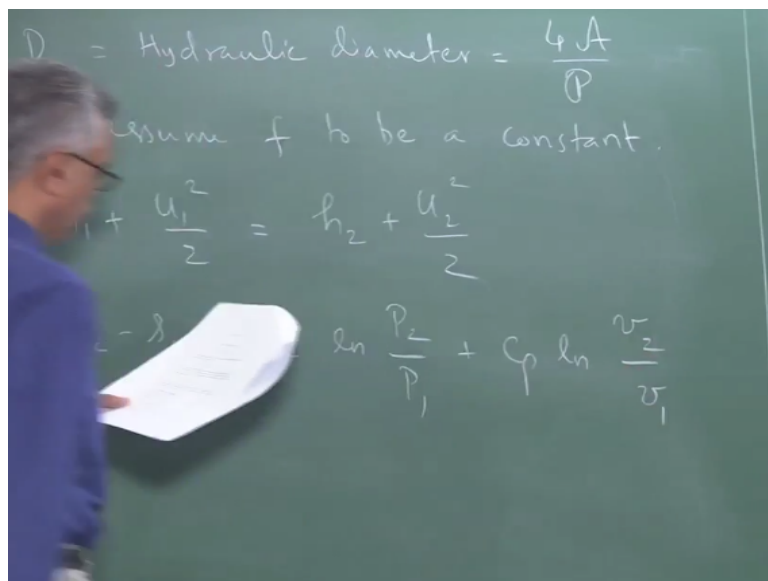 D = Hydraulic diameter = 4A/P
ssume f to be a constant.
₁ + u₁²/2 = h₂ + u₂²/2
₂ - s ln P₂/P₁ + Cp ln v₂/v₁